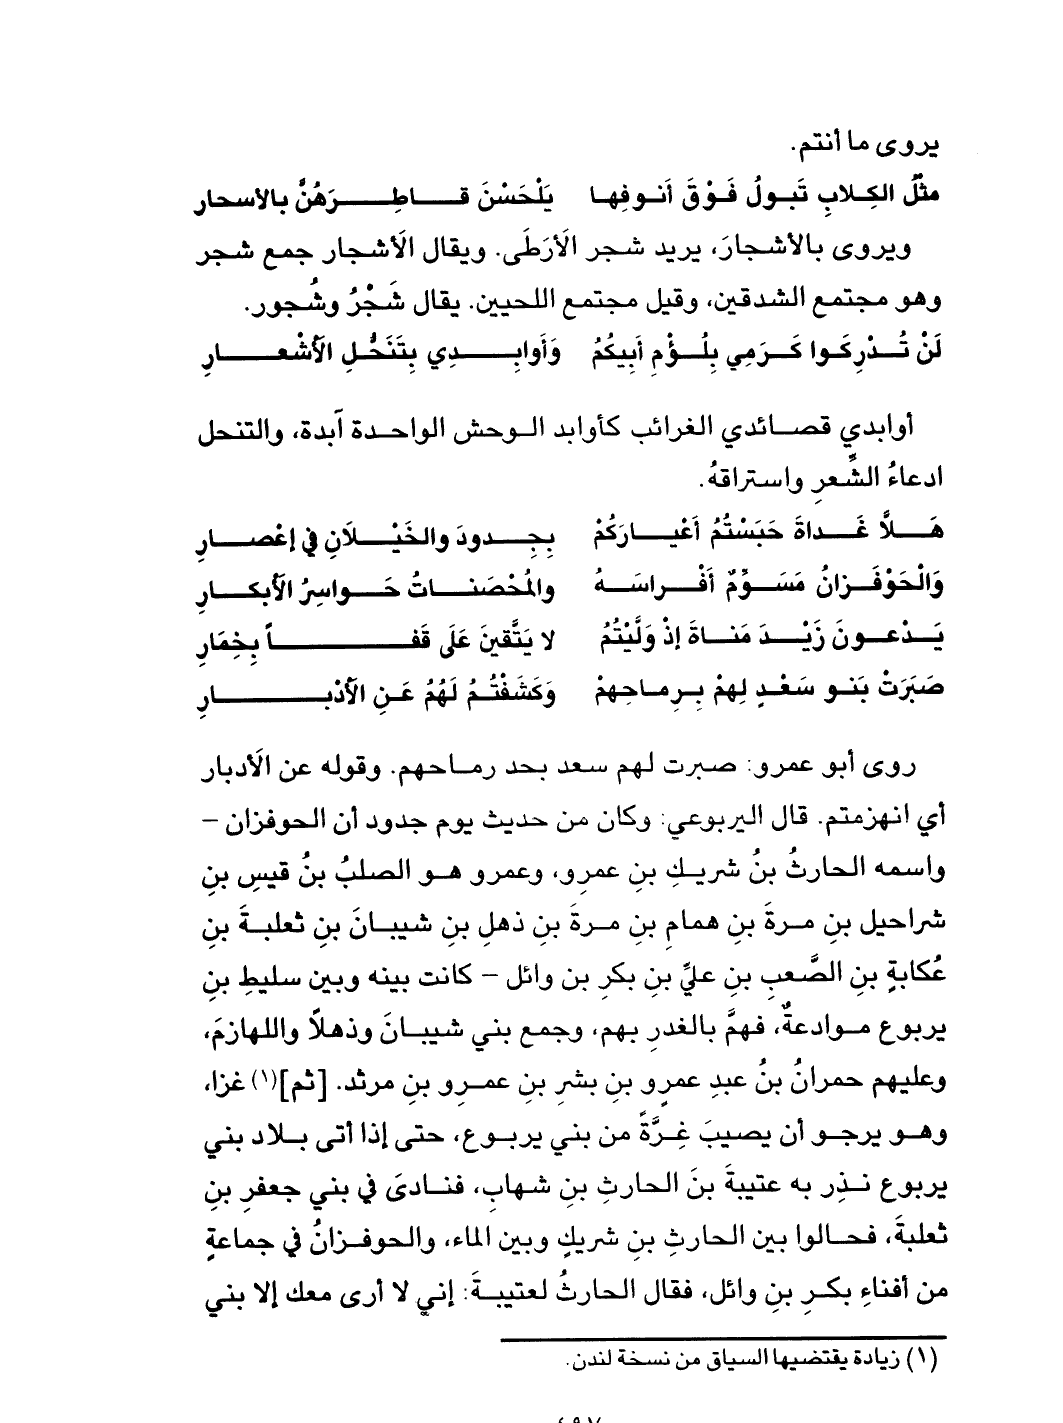 يروى ما أنتم.
مثْلُ الكِلابِ تَبولُ فَوْقَ أَنوفِها يَلْحَسْنَ قاطِرَهُنَّ بالاسحار
ويروى بالأشجارَ، يريد شجر الَأرَطَى. ويقال الَأشجار جمع شجر
وهو مجتمع الشدقين، وقيل مجتمع اللحيين. يقال شَجْرُ وشُجور.
لَنْ تُدْرِكَوا كَرَمِي بِلُؤْمِ أَبيكُمُ وَأَوابِدِي بِتَنَحُّلِ الأَشْعارِ
أوابدي قصائدي الغرائب كأوابد الوحش الواحدة آبدة، والتنحل
ادعاءُ الشِّعرِ واستراقهُ.
هَلاَّ غَداةَ حَبَسْتُمُ أَعْيارَكُمْ بِجِدودَ والخَيْلاَنِ في إعْصارِ
وَالْحَوْفَزانُ مَسَوِّمٌ أَفْراسَهُ والمُحْصَناتُ حَواسِرُ الأَبكارِ
يَدْعونَ زَيْدَ مَناةَ إذْ وَلَّيْتُمُ لا يَتَّقينَ عَلَى قَفاً بِخِمَارِ
صَبَرَتْ بَنو سَعْدٍ لِهمْ بِرِماحِهمْ وَكَشَفْتُمُ لَهُمُ عَنِ الأَدْبارِ
روى أبو عمرو: صبرت لهم سعد بحد رماحهم. وقوله عن الَأدبار
أي انهزمتم. قال اليربوعي: وكان من حديث يوم جدود أن الحوفزان –
واسمه الحارثُ بنُ شريكِ بنِ عمرو، وعمرو هو الصلبُ بنُ قيسِ بنِ
شراحيل بنِ مرةَ بنِ همامِ بنِ مرةَ بنِ ذهلِ بنِ شيبانَ بنِ ثعلبةَ بنِ
عُكابةِ بنِ الصَّعبِ بنِ عليِّ بنِ بكرِ بنِ وائل – كانت بينه وبين سليطِ بنِ
يربوع موادعةٌ، فهمَّ بالغدر بهم، وجمع بني شيبانَ وذهلاً واللهازمَ،
وعليهم حمرانُ بنُ عبدِ عمرٍو بنِ بشرِ بنِ عمرِو بنِ مرثد. [ثم](١) غزا،
وهو يرجو أن يصيبَ غِرَّةً من بني يربوع، حتى إذا أتى بلاد بني
يربوع نذِر به عتيبةَ بنَ الحارثِ بنِ شهابِ، فنادىَ في بني جعفرِ بنِ
ثعلبةَ، فحالوا بين الحارثِ بنِ شريكٍ وبين الماء، والحوفزانُ في جماعةٍ
من أفناءِ بكرِ بنِ وائل، فقال الحارثُ لعتيبةَ: إني لا أرى معك إلا بني
(١) زيادة يقتضيها السياق من نسخة لندن.